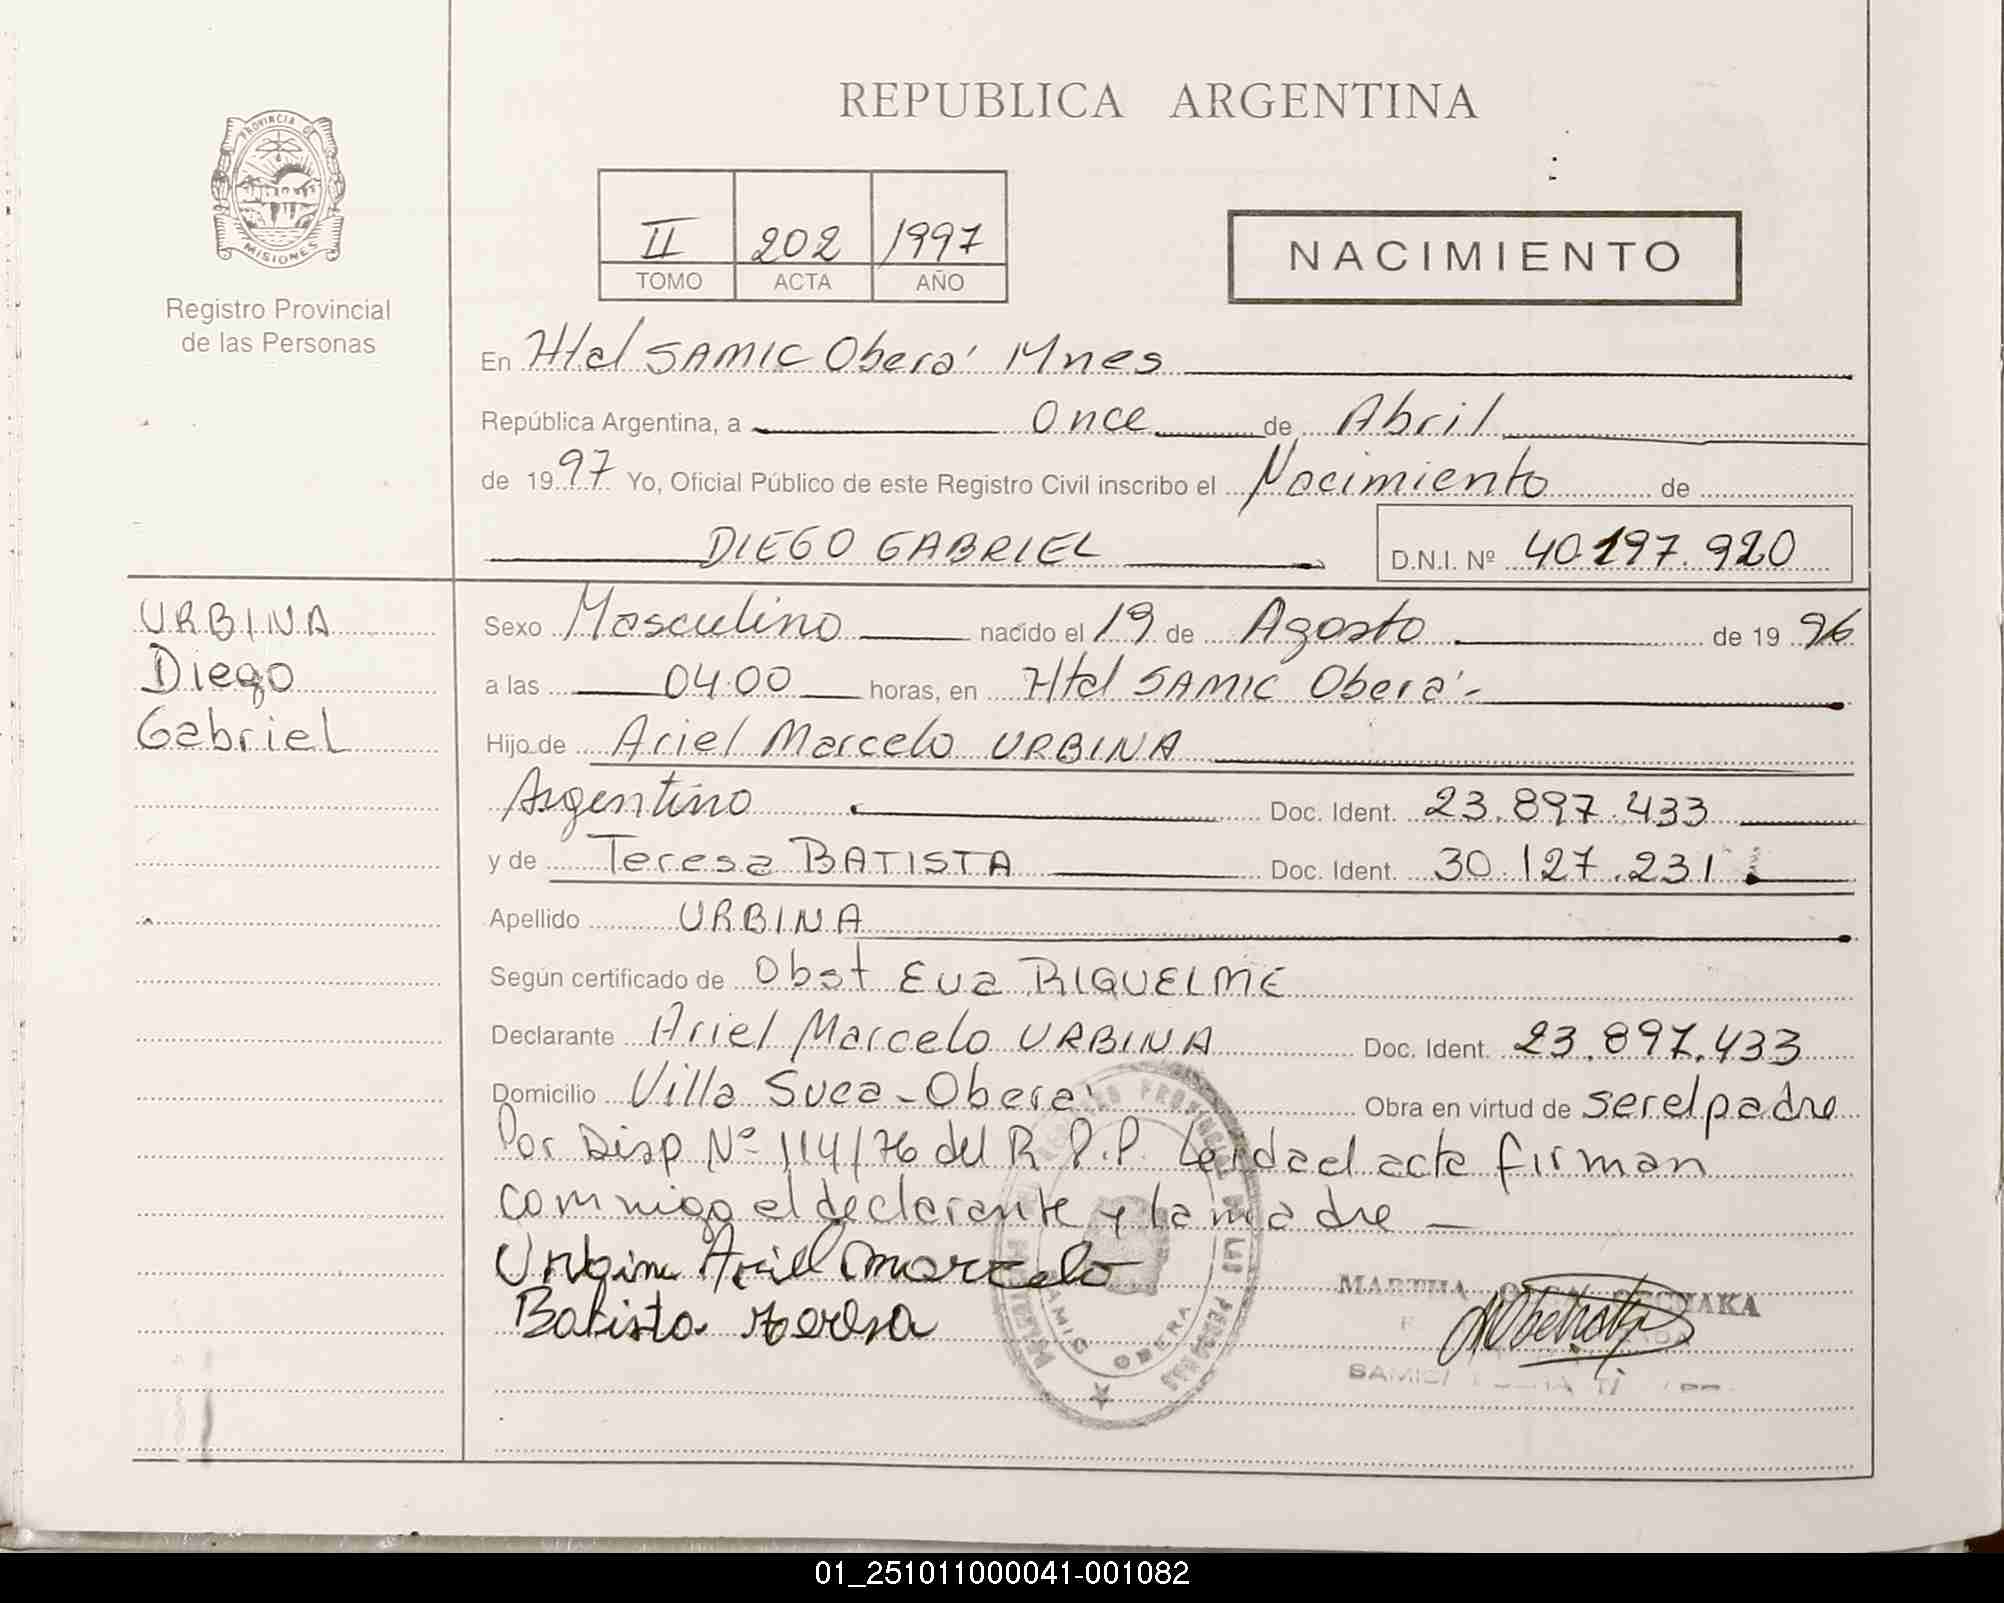 REPUBLICA ARGENTINA
PROVINCIA DE
MISIONES
Registro Provincial
de las Personas
II 202 1997
TOMO ACTA AÑO
NACIMIENTO
En Htal SAMIC Oberá Mnes
República Argentina, a Once de Abril
de 1997 Yo, Oficial Público de este Registro Civil inscribo el Nacimiento de
DIEGO GABRIEL D.N.I. Nº 40.197.920
URBINA
Diego
Gabriel
Sexo Masculino nacido el 19 de Agosto de 1996
a las 04.00 horas, en Htal SAMIC Oberá.-
Hijo de Ariel Marcelo URBINA
Argentino Doc. Ident. 23.897.433
y de Teresa BATISTA Doc. Ident. 30.127.231
Apellido URBINA
Según certificado de Obst Eva RIQUELME
Declarante Ariel Marcelo URBINA Doc. Ident. 23.897.433
Domicilio Villa Svea - Oberá Obra en virtud de ser el padre
Por Disp Nº 114/76 del R.P.P. Leida el acta firman
commigo el declarante y la madre —
Urbina Ariel Marcelo
Batista Teresa
REGISTRO PROVINCIAL DE LAS PERSONAS
SAMIC OBERA
MARTHA
SAMIC
01_251011000041-001082